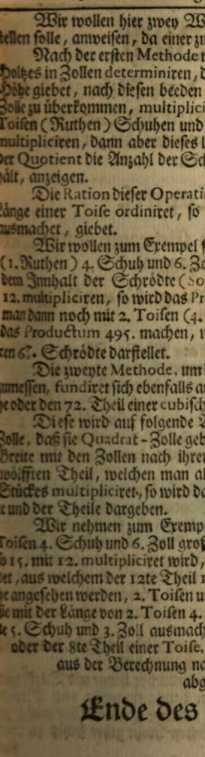 Wir wollen hier zwey W
stellen solle, anweisen, da einer zu
Nach der ersten Methode
Holtzes in Zollen determiniren,
Höhe giebet, nach diesen beeden
Zolle zu überkommen, multiplici
Toisen (Ruthen) Schuhen und
multipliciren, dann aber dieses
der Quotient die Anzahl der Sch
hält, anzeigen.
Die Ration dieser Operati
Länge einer Toise ordiniret, so
ausmachet, giebet.
Wir wollen zum Exempel
(1. Ruthen) 4. Schuh und 6. Zo
dem Innhalt der Schrödte (So
12. multipliciren, so wird das Pr
man dann noch mit 2. Toisen (4.
das Productum 495. machen,
Schrödte darstellet.
Die zweyte Methode, um
zumessen, fundiret sich ebenfalls
oder den 72. Theil einer cubisch
Diese wird auf folgende
Zolle, daß sie Quadrat-Zolle geb
Breite mit den Zollen nach ihrer
zwölfften Theil, welchen man
Stückes multipliciret, so wird
und der Theile dargeben.
Wir nehmen zum Exemp
Toisen 4. Schuh und 6. Zoll groß
15. mit 12. multipliciret wird,
aus welchem der 12te Theil
angesehen werden, 2. Toisen
mit der Länge von 2. Toisen 4.
5. Schuh und 3. Zoll ausmach
oder der 8te Theil einer Toise.
aus der Berechnung
abg
Ende des